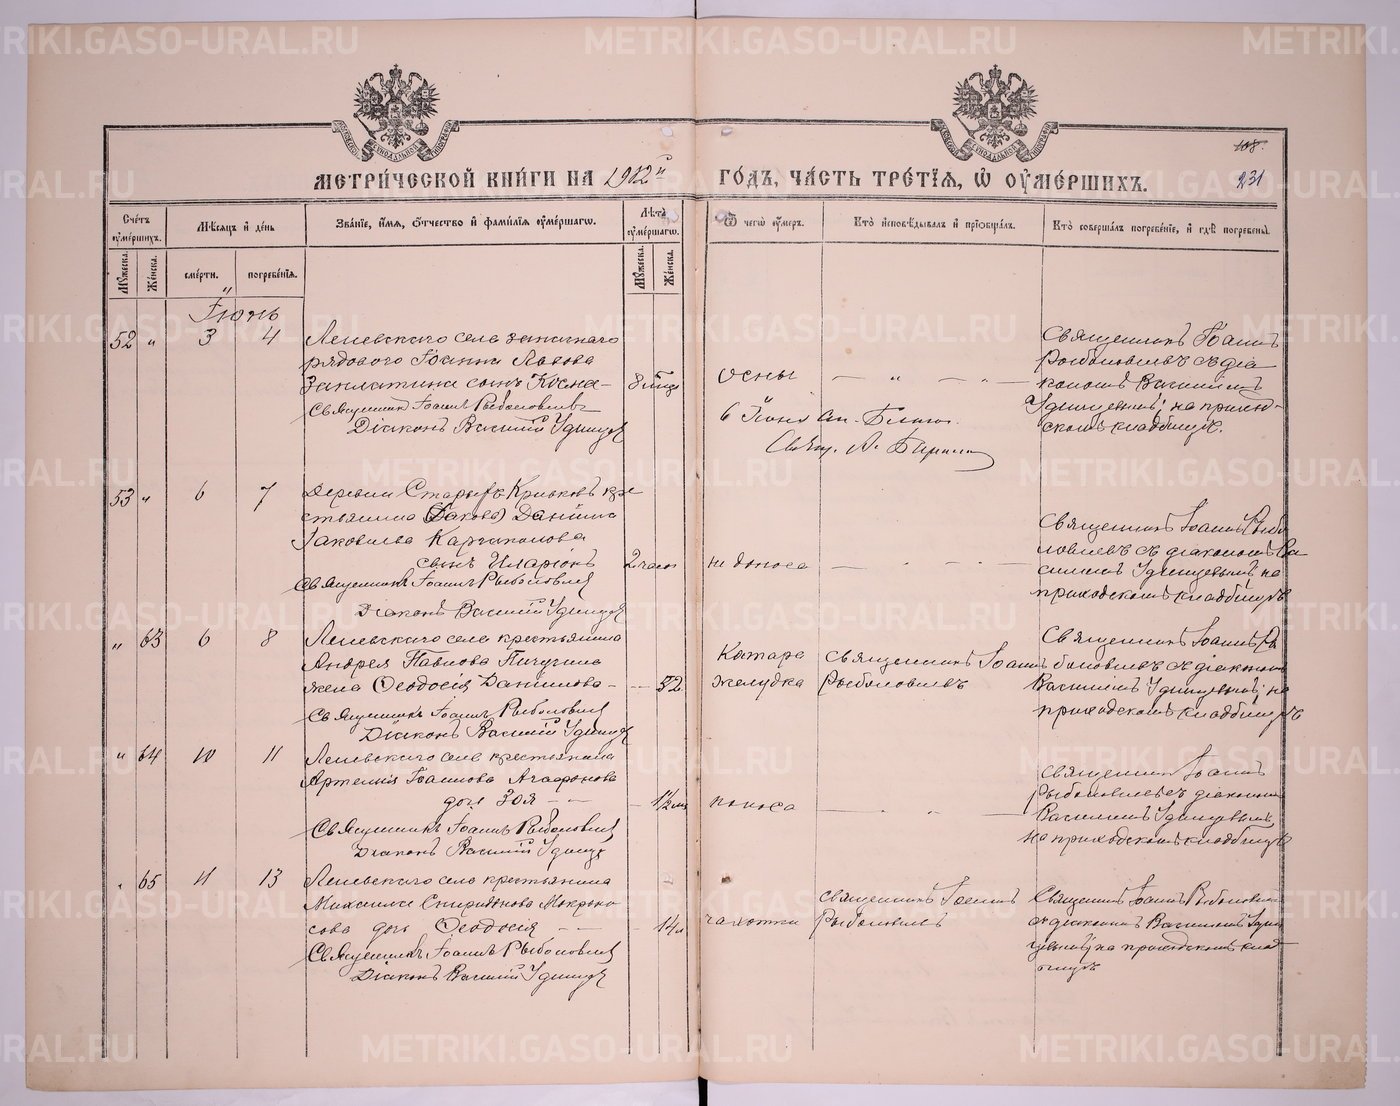 МЕТРИ́ЧЕСКОЙ КНИ́ГИ НА 1912й ГО́ДЪ, ЧА́СТЬ ТРЕ́ТІѦ, Ѡ ОУМЕ́РШИХЪ.
108.
231
Сче́тъ оуме́ршихъ.
Мѣ́сѧцъ и де́нь
Зва́нїе, и́мѧ, ѻ́тчество и фами́лїѧ оуме́ршагѡ.
Лѣ́та оуме́ршагѡ.
Ѿ чегѡ̀ оу́меръ.
Кто̀ и҆сповѣ́дывалъ и҆ прїѻбща́лъ.
Кто̀ соверша́лъ погребе́нїе, и҆ гдѣ̀ погребены̀.
Му́жеска.
Же́нска.
сме́рти.
погребе́нїѧ.
Му́жеска.
Же́нска.
Іюнь
52 " 3 4
Леневскаго села запаснаго
рядового Іоанна Львова
Заплатина сынъ Косма –
Священникъ Іоаннъ Рыболовлевъ
Діаконъ Василій Удинцев
8
Оспы — " — " —
Священникъ Іоаннъ
Рыболовлевъ съ діа
кономъ Василіемъ
Удинцевымъ; на приход-
скомъ кладбищѣ.
6 Іюня
53 " 6 7
Деревни Старыхъ Кривковъ кре
стьянина (Іакова) Даніила
Іаковлева Каргаполова
сынъ Иларіонъ
Священникъ Іоаннъ Рыболовлев
Діаконъ Василій Удинцев
2 часа
недоноса
Священникъ Іоаннъ Рыбо
ловлевъ съ діакономъ Ва
силіемъ Удинцевымъ на
приходскомъ кладбищѣ
" 63 6 8
Леневскаго села крестьянина
Андрея Павлова Пичугина
жена Ѳеодосія Данилова –
Священникъ Іоаннъ Рыболовлев
Діаконъ Василій Удинцев
– 32
Катара
желудка
Священникъ Іоаннъ
Рыболовлевъ
Священникъ Іоаннъ Ры
боловлевъ съ діакономъ
Василіемъ Удинцевымъ; на
приходскомъ кладбищѣ
" 64 10 11
Леневскаго села крестьянина
Артемія Іоаннова Агафонова
дочь Зоя – –
Священникъ Іоаннъ Рыболовлев
Діаконъ Василій Удинцев
– 1½ мѣс
поноса
Священникъ Іоаннъ
Рыболовлевъ съ діакономъ
Василіемъ Удинцевымъ
на приходскомъ кладбищѣ
" 65 11 13
Леневскаго села крестьянина
Михаила Спиридонова Мокроно
сова дочь Ѳеодосія – –
Священникъ Іоаннъ Рыболовлев
Діаконъ Василій Удинцев
– 14 л
чахотки
Священникъ Іоаннъ
Рыболовлевъ
Священникъ Іоаннъ Рыболовлевъ
съ діакономъ Василіемъ Удин
цевымъ; на приходскомъ клад
бищѣ
METRIKI.GASO-URAL.RU